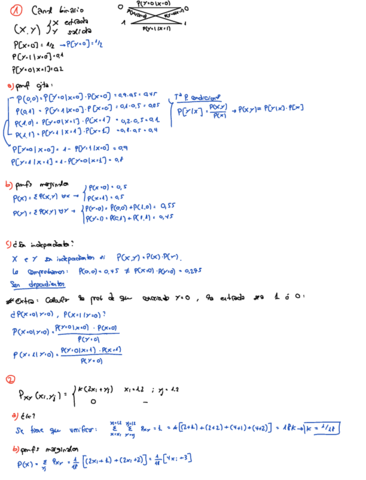 ① Canal binario
(X,Y) X entrada
Y salida
0 P(Y=0|X=0) 0
1 P(Y=1|X=1) 1
P[X=0] = 1/2 → P[X=0] = 1/2
P[Y=1|X=0] = 0,1
P[Y=0|X=1] = 0,2
a) pmf cjta:
P(0,0) = P[Y=0|X=0]·P[X=0] = 0,9·0,5 = 0,45
P(0,1) = P[Y=1|X=0]·P[X=0] = 0,1·0,5 = 0,05
P(1,0) = P[Y=0|X=1]·P[X=1] = 0,2·0,5 = 0,1
P(1,1) = P[Y=1|X=1]·P[X=1] = 0,8·0,5 = 0,4
Tª P. condicional
P[Y|X] = P(X,Y)/P[X] → P(X,Y) = P[Y|X]·P[X]
P[Y=0|X=0] = 1 - P[Y=1|X=0] = 0,9
P[Y=1|X=1] = 1 - P[Y=0|X=1] = 0,8
b) pmfs marginales
P(X) = Σ P(X,Y) ∀Y → P(X=0) = 0,5
P(X=1) = 0,5
P(Y) = Σ P(X,Y) ∀X → P(Y=0) = P(0,0) + P(1,0) = 0,55
P(Y=1) = P(0,1) + P(1,1) = 0,45
c) ¿Son independientes?
X e Y son independientes si P(X,Y) = P(X)·P(Y).
Lo comprobamos: P(0,0) = 0,45 ≠ P(X=0)·P(Y=0) = 0,275
Son dependientes
Extra: Calcular la prob de que cuando Y=0, la entrada sea 1 ó 0:
¿P(X=0|Y=0), P(X=1|Y=0)?
P(X=0|Y=0) = P(Y=0|X=0)·P(X=0)/P(Y=0)
P(X=1|Y=0) = P(Y=0|X=1)·P(X=1)/P(Y=0)
②
P_XY(xi,yj) = { k(2xi+yj) xi=1,2 ; yj=1,2
0 —
a) ¿k?
Se tiene que verificar: Σ Σ P_XY = 1 → k[(2+1)+(2+2)+(4+1)+(4+2)] = 18k → k = 1/18
b) pmfs marginales
P(X) = Σ P_XY = 1/18[(2xi+1)+(2xi+2)] = 1/18[4xi+3]